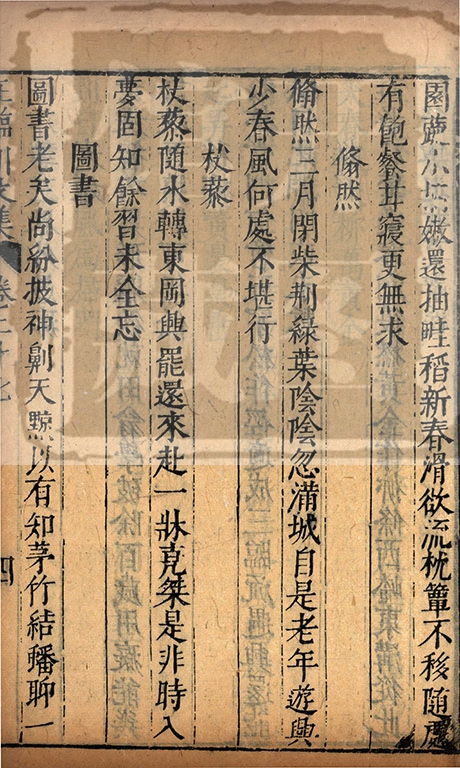 園蔬小摘嫩還抽畦稻新舂滑欲流枕簟不移隨處
有飽餐甘寢更無求
翛然
翛然三月閉柴荆綠葉陰陰忽滿城自是老年遊興
少春風何處不堪行
杖藜
杖藜隨水轉東岡興罷還來赴一牀堯桀是非時入
夢固知餘習未全忘
圖書
圖書老矣尚紛披神劓天黥以有知茅竹結蟠聊一
王臨川文集 卷二十七 四